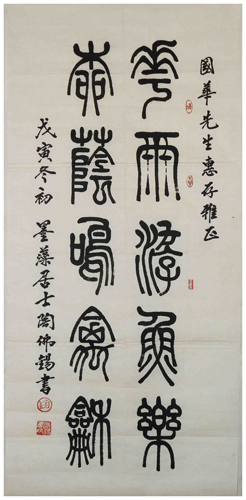 國華先生惠存雅正
花雨游魚樂
春蔭鳴禽龢
戊寅冬初墨藻居士陶佛錫書